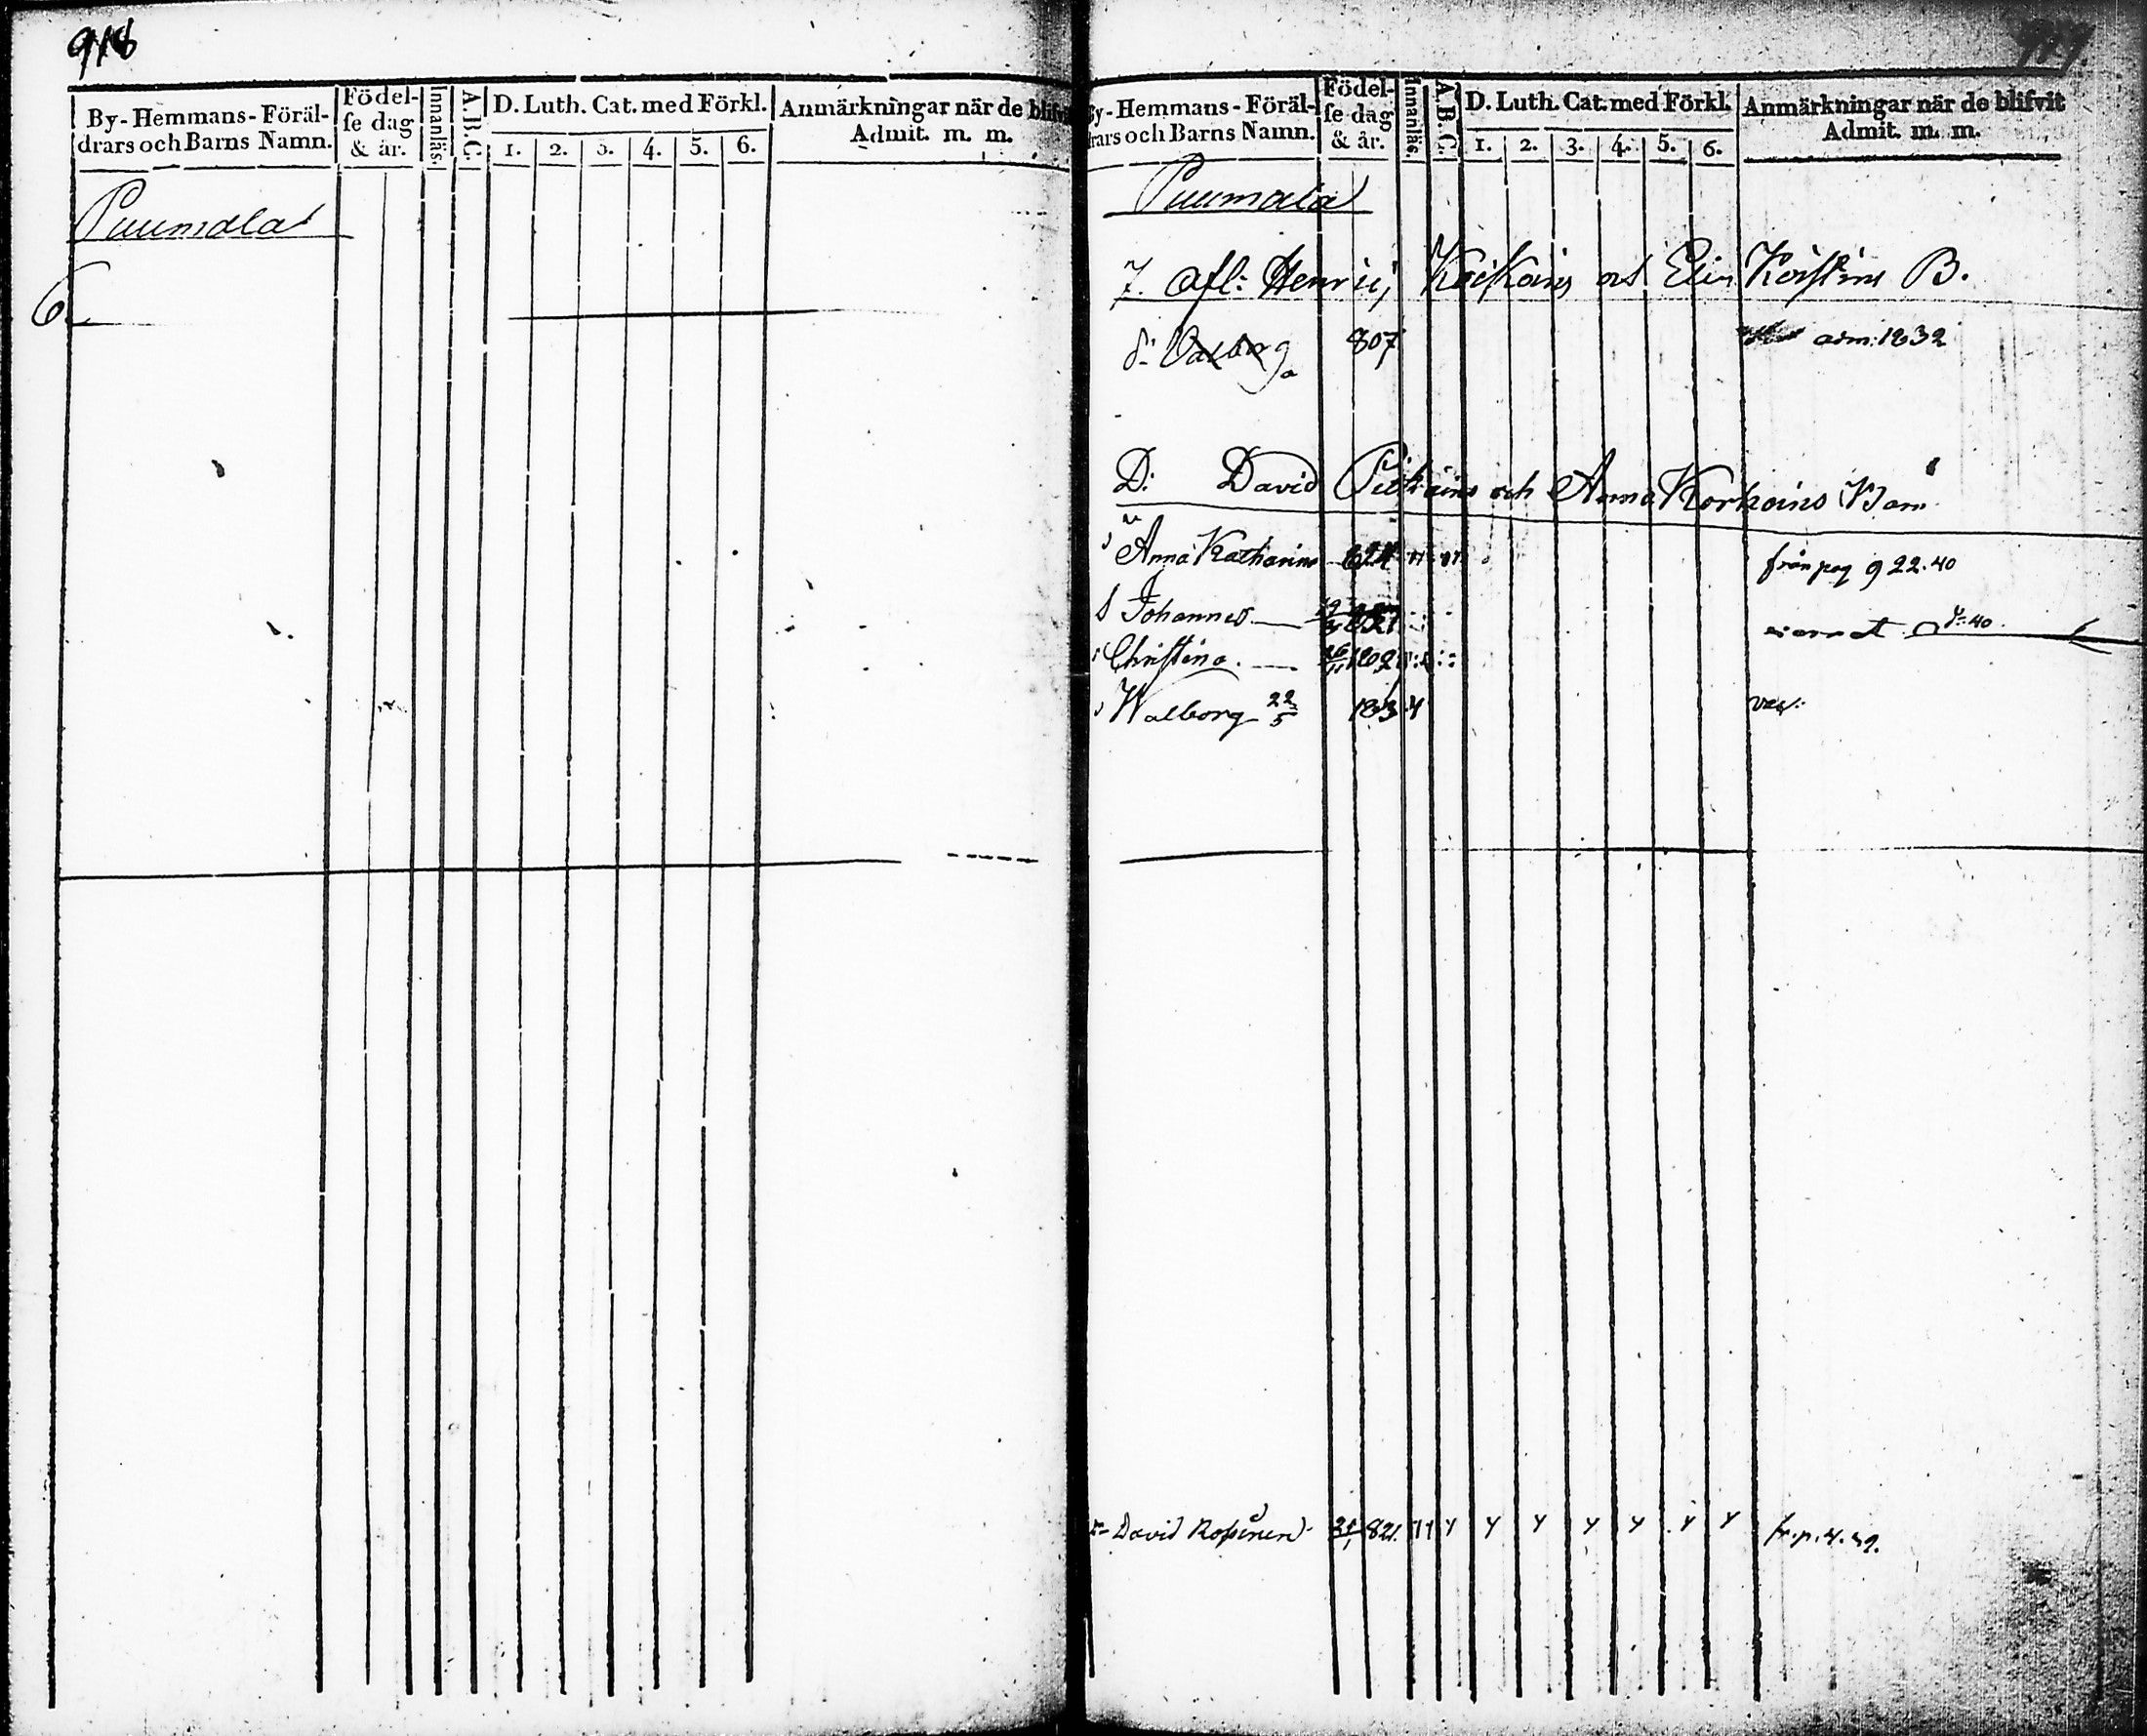 918
By-Hemmans-Föräl-
drars och Barns Namn.
Födel-
se dag
& år.
Innanläs:
A.B.C.
D. Luth. Cat. med Förkl.
1. 2. 3. 4. 5. 6.
Anmärkningar när de blifvit
Admit. m. m.
Puumala
6
919.
By-Hemmans-Föräl-
drars och Barns Namn.
Födel-
se dag
& år.
Innanläs.
A.B.C.
D. Luth. Cat. med Förkl.
1. 2. 3. 4. 5. 6.
Anmärkningar när de blifvit
Admit. m. m.
Puumala
7. Afl: Henric, och Elin B.
d: Valborg 807 adm: 1832
D: David och Anna Korkoins Barn
Anna Katharina 824 från pag 922.40
Johannes 827
Christina.
Walborg 22/5 1834
David 821. Y Y Y Y Y Y Y fr. p. 4. 39.